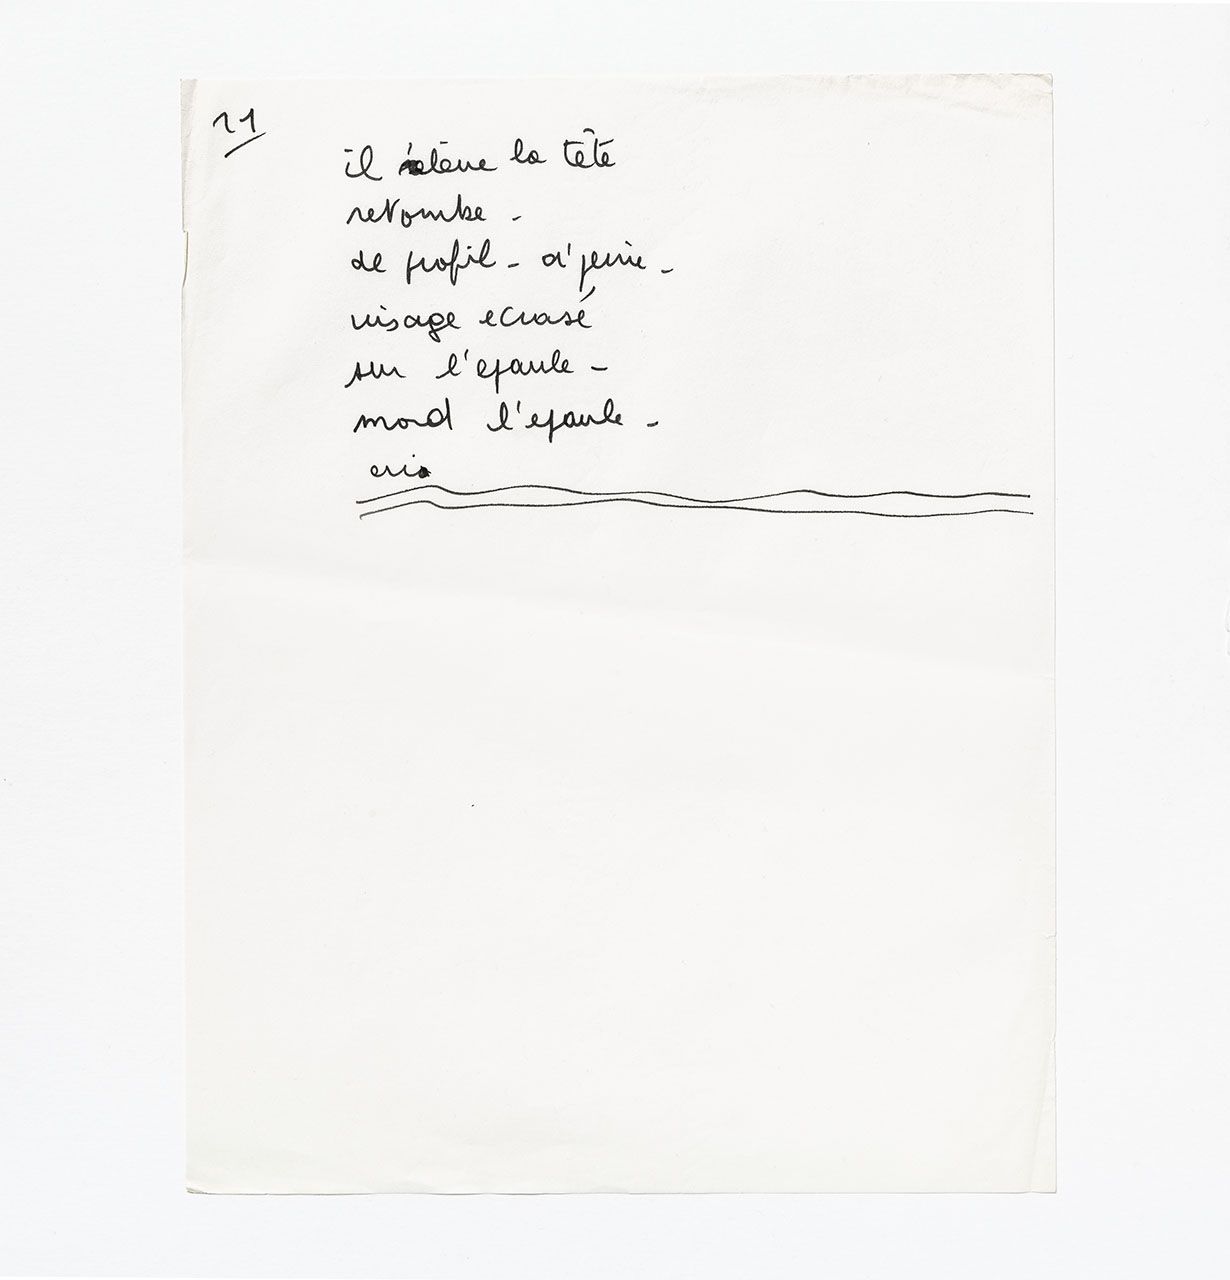 11
il élève la tête
retombe -
de profil - a' peine -
visage ecrasé
sur l'epaule -
mord l'epaule -
cris